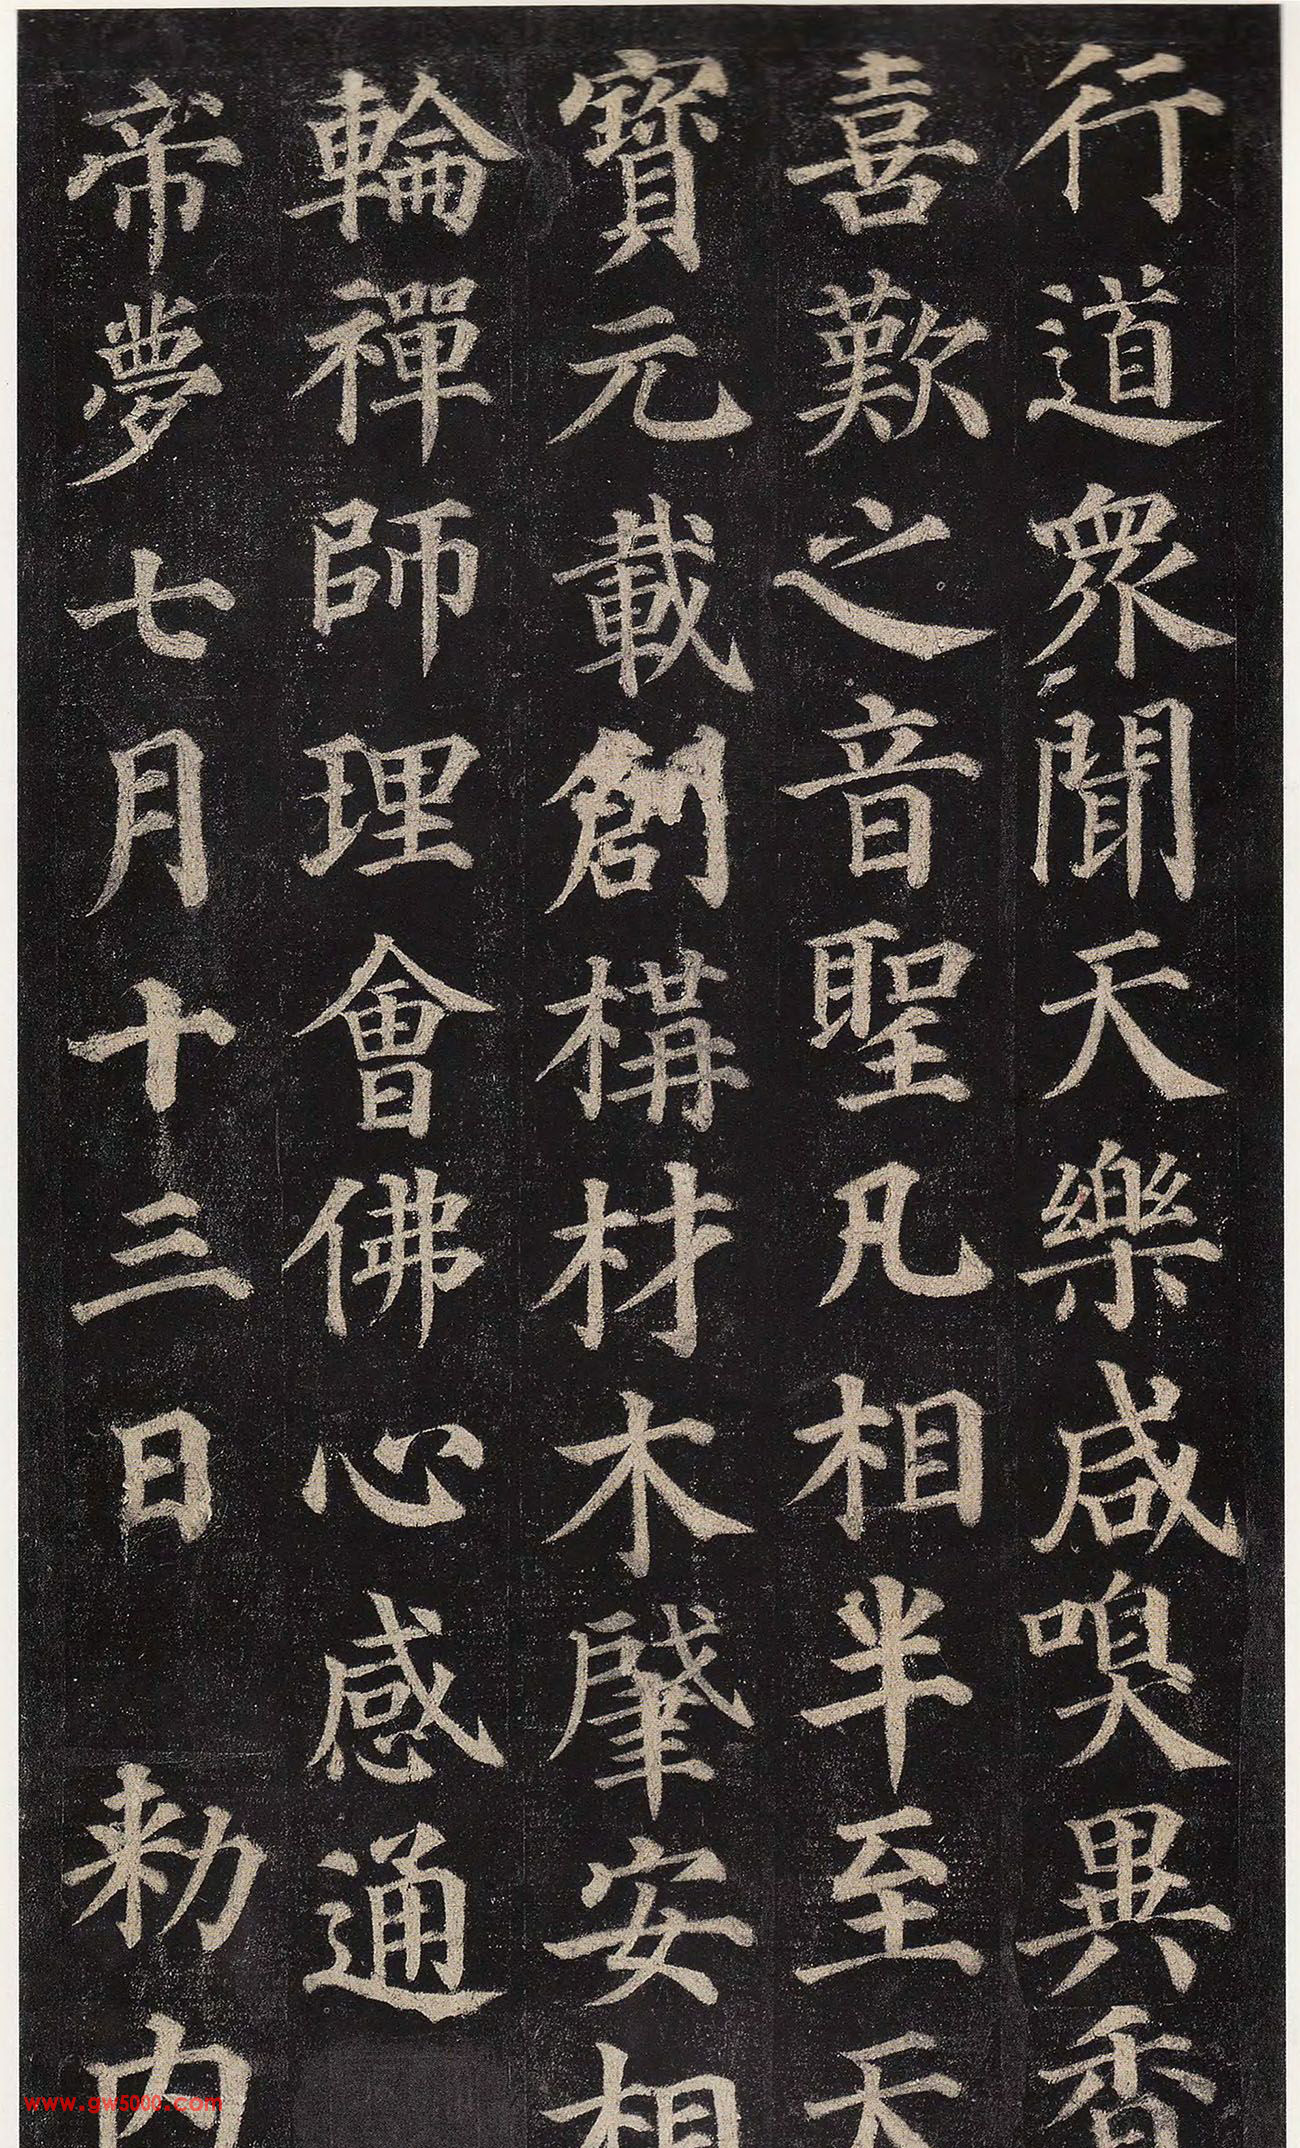 行道衆聞天樂咸嗅異香
喜歎之音聖凡相半至天
寶元載創構材木肇安相
輪禪師理會佛心感通
帝夢七月十三日 勅内
www.gw5000.com